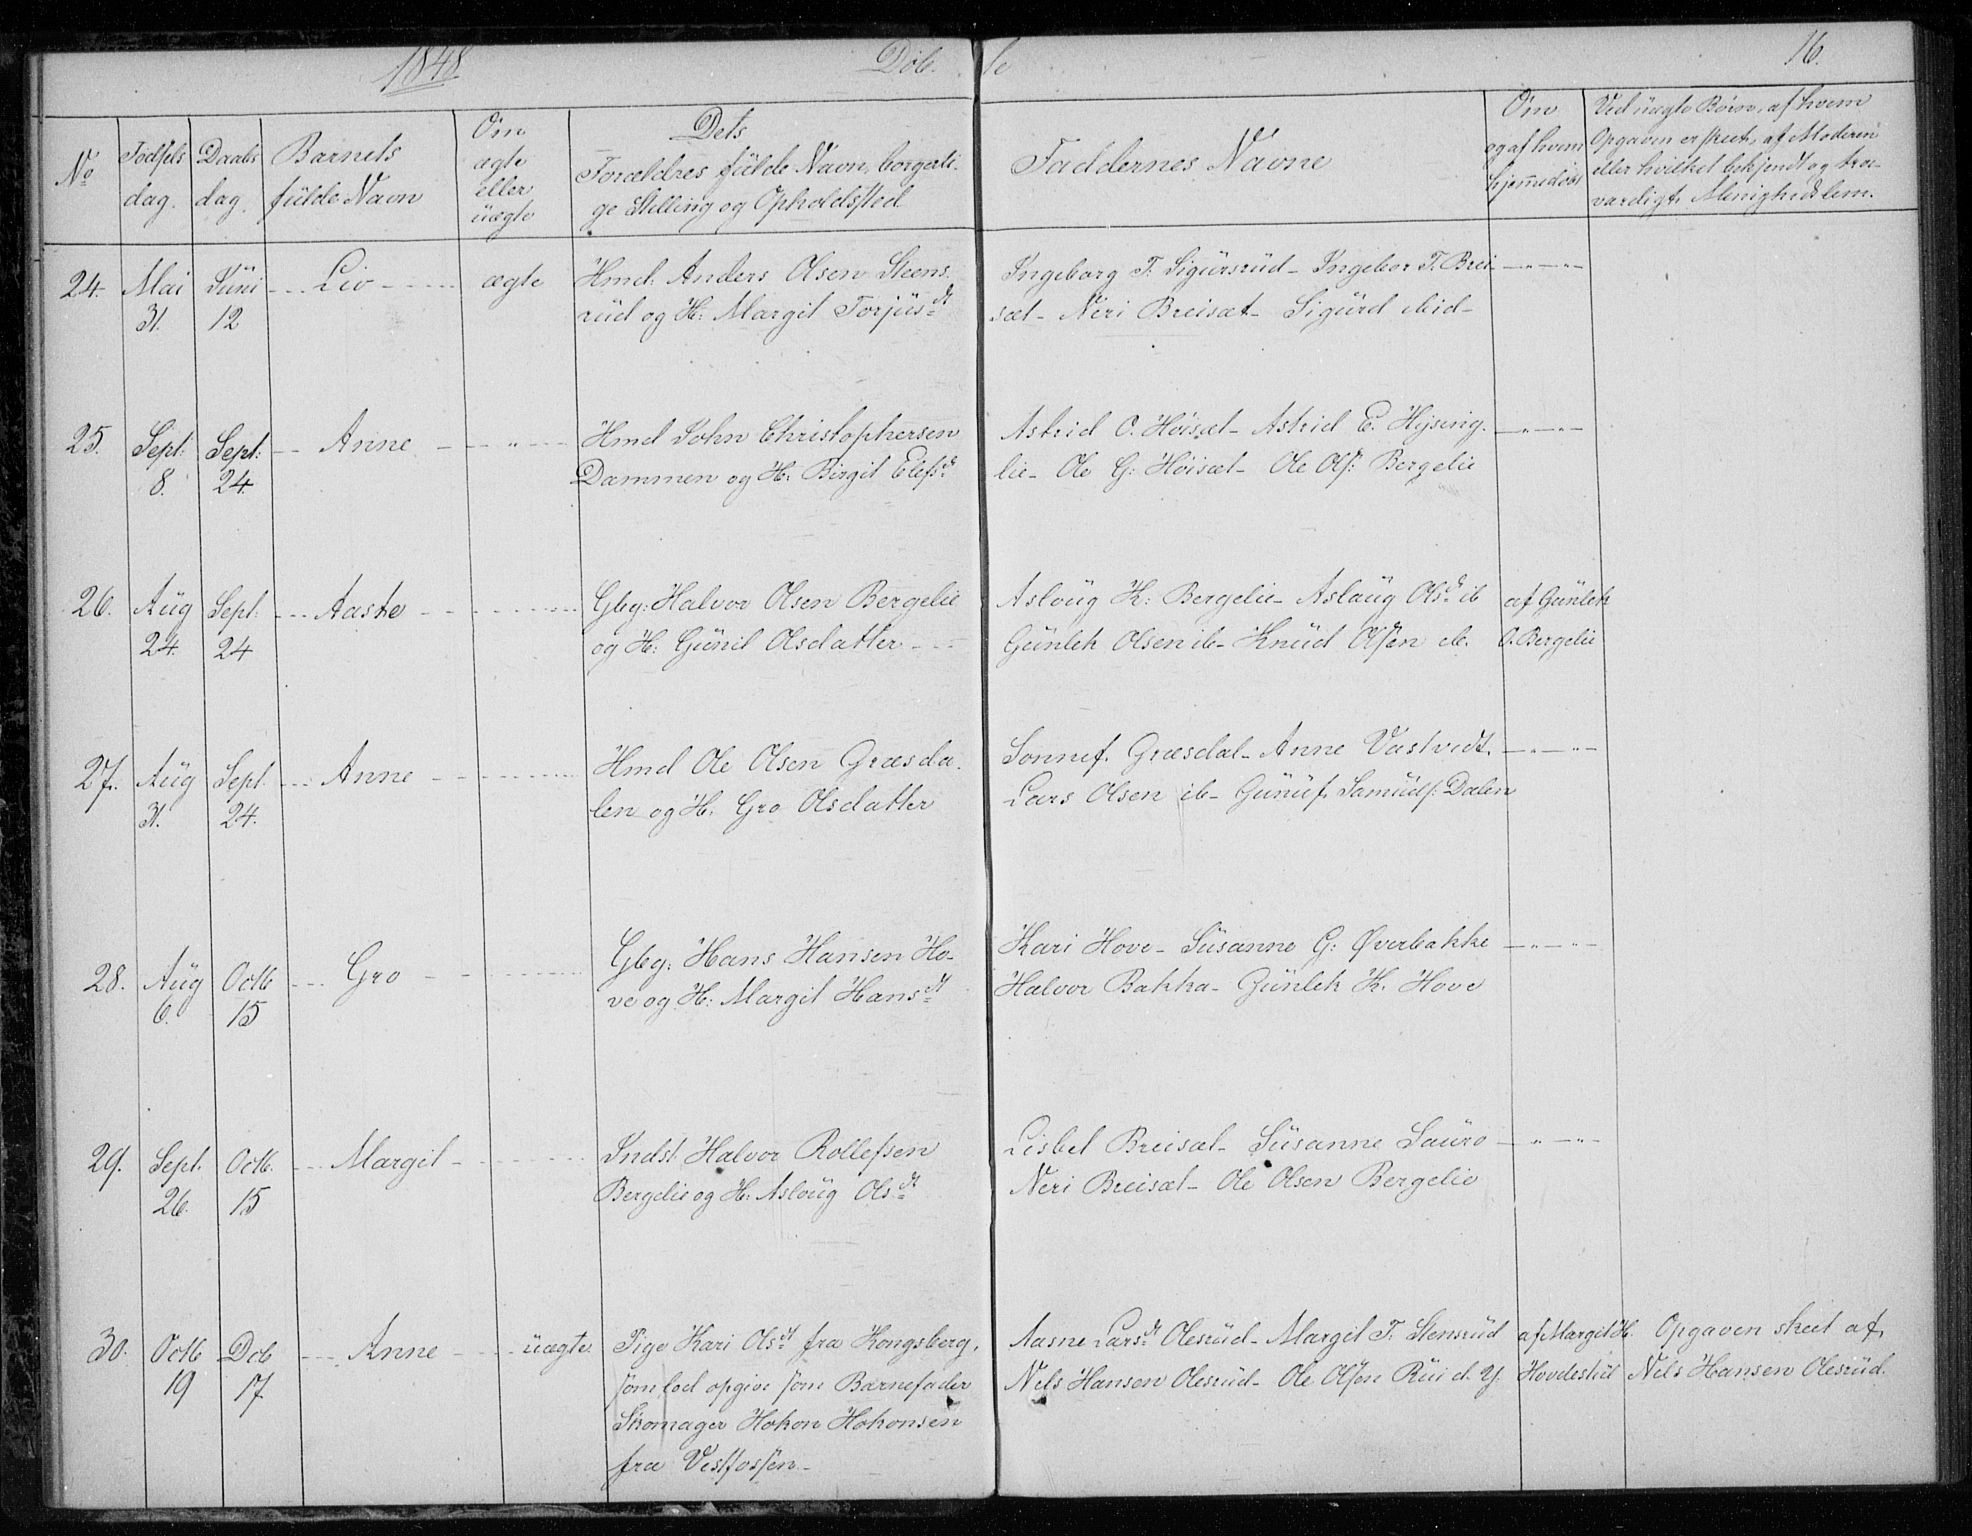 1848 Döb- te 16.
No Fødsels dag. Daabs dag. Barnets fülde Navn Om ægte eller üægte Dets Forældres fülde Navn, borgerlige Stilling og Opholdssted Faddernes Navne Om og af hvem hjem̄edöbt Ved üægte Börn, af hvem Opgaven er skeet, af Moderen eller hvilket bekjendt og troværdigt Menighedslem.
24. Mai Jüni Liv ægte Hmd. Anders Olsen Steens-
31. 12 rüd og H: Margit Torjüsdt
Ingeborg T. Sigürsrüd- Ingebor T. Brei- — „ —
sæt- Neri Breisæt- Sigürd ibid-
25. Sept: Sept: Anne „ Hmd John Christophersen
8. 24. Dammen og H: Birgit Elefsdt
Astrid O. Höisæt- Astrid E. Hysing- — „ —
lie- Ole G: Höisæt- Ole Ols: Bergelie
26. Aüg Sept: Aaste Gbg: Halvor Olsen Bergelie
24. 24 og H: Günil Olsdatter
Aslaüg K: Bergelie- Aslaüg Olsdt ib af Günlek
Günlek Olsen ib- Knüd Olsen ib. O. Bergelie
27. Aüg Sept. Anne Hmd Ole Olsen Græsda-
31. 24. len og H: Gro Olsdatter
Sonnef. Græsdal- Anne Vastvedt. — „ —
Lars Olsen ib- Günüf. Samüds: Dalen
28. Aüg Octb Gro Gbg: Hans Hansen Ho-
6. 15 ve og H: Margit Hansdt
Kari Hove- Süsanne G: Øverbakke — „ —
Halvor Bakka- Günlek K. Hove
29. Sept. Octb. Margit Indst Halvor Rollefsen
26. 15 Bergelie og H: Aslaüg Olsdt
Lisbet Breisæt- Süsanne Saüro — „ —
Neri Breisæt- Ole Olsen Bergelie
30. Octb Dcb Anne üægte Pige Kari Olsdt fra Kongsberg,
19 17 som lod opgive som Barnefader
Skomager Hokon Hokonsen
fra Vestfossen-
Aasne Larsdt Olesrüd- Margit T. Stensrüd af Margit H. Opgaven skeet af
Nels Hansen Olesrüd- Ole Olsen Rüi d. Y. Hovdestül Nels Hansen Olesrüd.